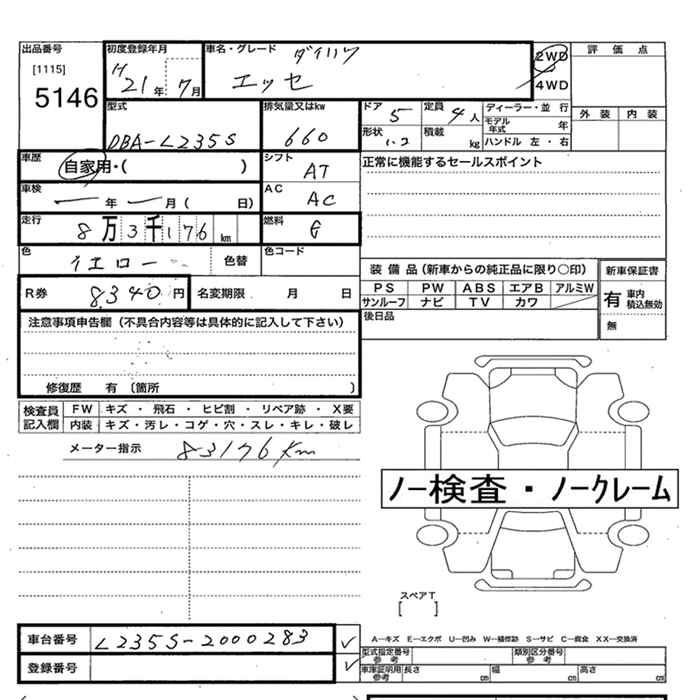 出品番号 初度登録年月 車名・グレード ダイハツ 2WD 評価点
[1115] H21年7月 エッセ 4WD
5146 外装 内装
型式 排気量又はkw ドア 5 定員 4人 ディーラー・並行
モデル年式 年
DBA-L235S 660 形状 ハコ 積載 kg ハンドル 左・右
車歴 自家用・( ) シフト AT 正常に機能するセールスポイント
車検 一年 一月( 日) AC AC
走行 8万3千176km 燃料 G
色 イエロー 色替 色コード
装備品(新車からの純正品に限り○印) 新車保証書
R券 8,340円 名変期限 月 日 PS PW ABS エアB アルミW 有 車内積込無効
サンルーフ ナビ TV カワ
注意事項申告欄(不具合内容等は具体的に記入して下さい) 後日品 無
修復歴 有 (箇所 )
検査員 FW キズ ・ 飛石 ・ ヒビ割 ・ リペア跡 ・ X要
記入欄 内装 キズ・汚レ・コゲ・穴・スレ・キレ・破レ
メーター指示 83176Km
ノー検査・ノークレーム
スペアT
[ ]
車台番号 L235S-2000283 ✓ A―キズ E―エクボ U―凹み W―補修跡 S―サビ C―腐食 XX―交換済
型式指定番号 参考 類別区分番号 参考
登録番号 ✓ 車庫証明用 参考 長さ cm 幅 cm 高さ cm